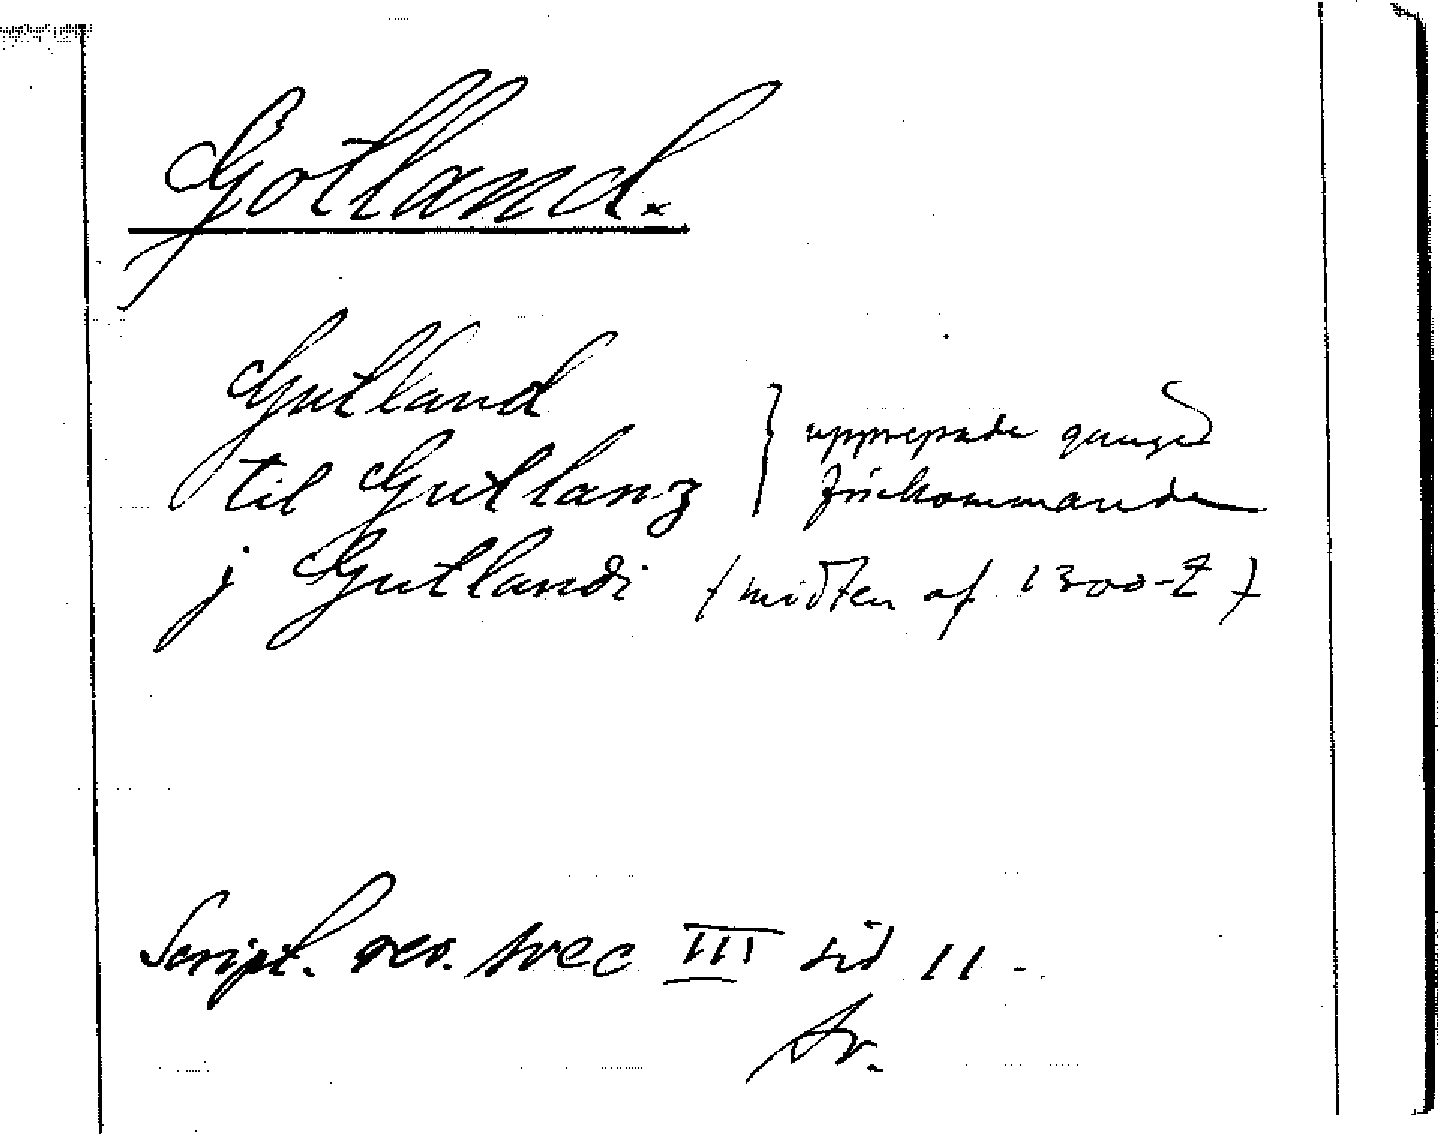 Gotland.
Gutland
til Gutlanz } upprepade gånger
förekommande
j Gutlandi (midten af 1300-t)
Script. rer. svec III sid 11 -
Sv.